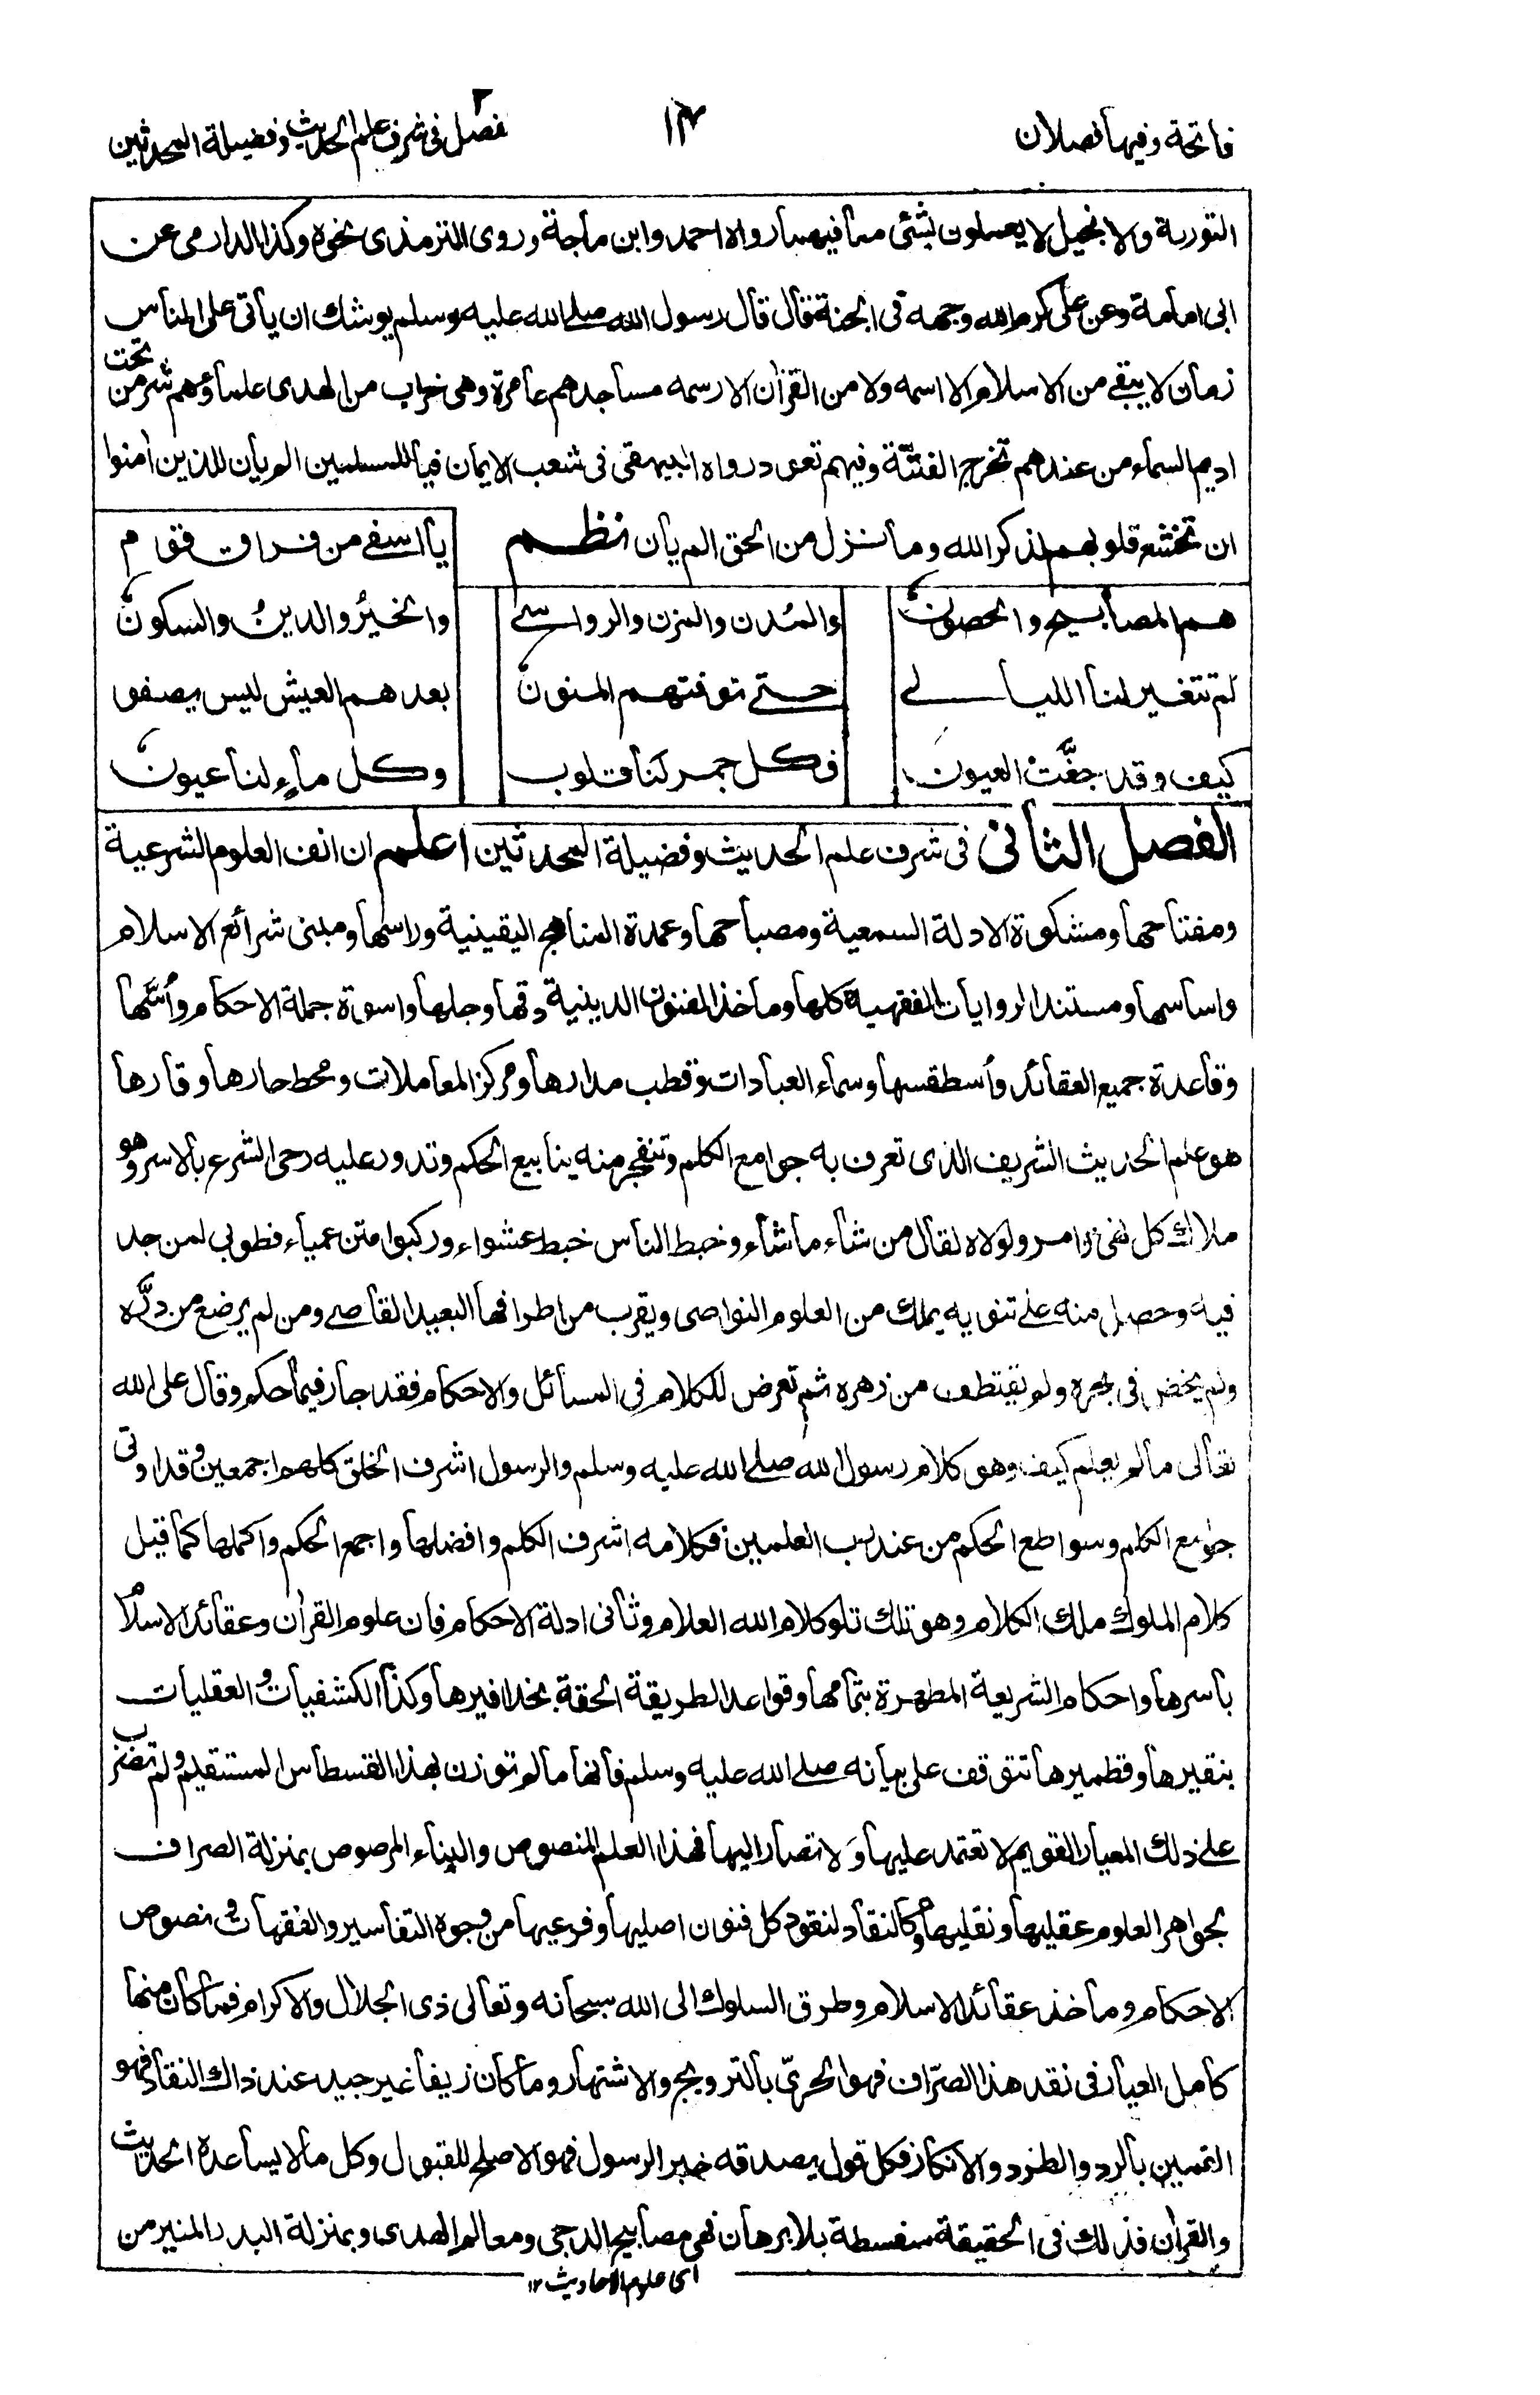 فاتحة وفيها فصلان
١٤
فصل فى شرف علم الحديث وفضيلة المحدثين
التورىة والانجيل لا يعملون بشئ مما فيهما رواه احمد وابن ماجة وروى الترمذى نحوه وكذا الدارمى عن
ابى امامة وعن على كرم الله وجهه فى الجنة قال قال رسول الله صلے الله عليه وسلم يوشك ان يأتى على الناس
زمان لا يبقے من الاسلام الا اسمه ولا من القرآن الا رسمه مساجدهم عامرة وهى خراب من الهدى علماؤهم شر من تحت
اديم السماء من عندهم تخرج الفتنة وفيهم تعود رواه البيهقى فى شعب الايمان فيا للمسلمين الم يان للذين اٰمنوا
ان تخشع قلوبهم لذكر الله وما نزل من الحق الم يأن نظم
يا اسفے من فراق قوم
هم المصابيح والحصون
والمُدن والمزن والرواسے
والخيرُ والدينُ والسكون
لم تتغير لنا الليالے
حتے توفتهم المنون
بعدهم العيش ليس يصفو
كيف وقد جفَّت العيون
فكل جمر لنا قلوب
وكل ماءٍ لنا عيون
الفصل الثانى فى شرف علم الحديث وفضيلة المحدثين اعلم ان انف العلوم الشرعية
ومفتاحها ومشكوة الادلة السمعية ومصباحها وعمدة المناهج اليقينية وراسها ومبنى شرائع الاسلام
واساسها ومستند الروايات الفقهية كلها وماخذ الفنون الدينية دقها وجلها واسوة جملة الاحكام واُسّها
وقاعدة جميع العقائد واُسطقسها وسماء العبادات وقطب مدارها ومركز المعاملات ومحط حارها وقارها
هو علم الحديث الشريف الذى تعرف به جوامع الكلم وتنفجر منه ينابيع الحكم وتدور عليه رحى الشرع بالاسر وهو
ملاك كل نهى وامر ولولاه لقال من شاء ما شاء وخبط الناس خبط عشواء وركبوا متن عمياء فطوبى لمن جد
فيه وحصل منه علے تنويه يملك من العلوم النواصى ويقرب من اطرافها البعيد القاصے ومن لم يرضع من درّه
ولم يخض فى بحره ولم يقتطف من زهره ثم تعرض للكلام فى المسائل والاحكام فقد جار فيما حكم وقال على الله
تعالى ما لم يعلم كيف وهو كلام رسول الله صلے الله عليه وسلم والرسول اشرف الخلق كلهم اجمعين وقد اوتى
جوامع الكلم وسواطع الحكم من عند رب العلمين فكلامه اشرف الكلم وافضلها واجمع الحكم واكملها كما قيل
كلام الملوك ملك الكلام وهو تلك تلو كلام الله العلام وثانى ادلة الاحكام فان علوم القرآن وعقائد الاسلام
باسرها واحكام الشريعة المطهرة بتمامها وقواعد الطريقة الحقة بحذافيرها وكذا الكشفيات والعقليات
بنقيرها وقطميرها تتوقف على بيانه صلے الله عليه وسلم فانها ما لم توزن بهذا القسطاس المستقيم ولم تضرب
علے ذلك المعيار القويم لا تعتمد عليها ولا تصار اليها فهذا العلم المنصوص والبناء المرصوص بمنزلة الصراف
بجواهر العلوم عقليها ونقليها وكالنقاد لنقود كل فنون اصليها وفرعيها من وجوه التفاسير والفقهات ونصوص
الاحكام وماخذ عقائد الاسلام وطرق السلوك الى الله سبحانه وتعالى ذى الجلال والاكرام فما كان منها
كامل العيار فى نقد هذا الصرّاف فهو الحرىّ بالترويج والاشتهار وما كان زيفا غير جيد عند ذاك النقاد فهو
القمين بالرد والطرد والانكار فكل قول يصدقه خبر الرسول فهو الاصلح للقبول وكل ما لا يساعده الحديث
والقرآن فذلك فى الحقيقة سفسطة بلا برهان فهى مصابيح الدجى ومعالم الهدى وبمنزلة البدر المنير من
اى علوم الاحاديث ١٢